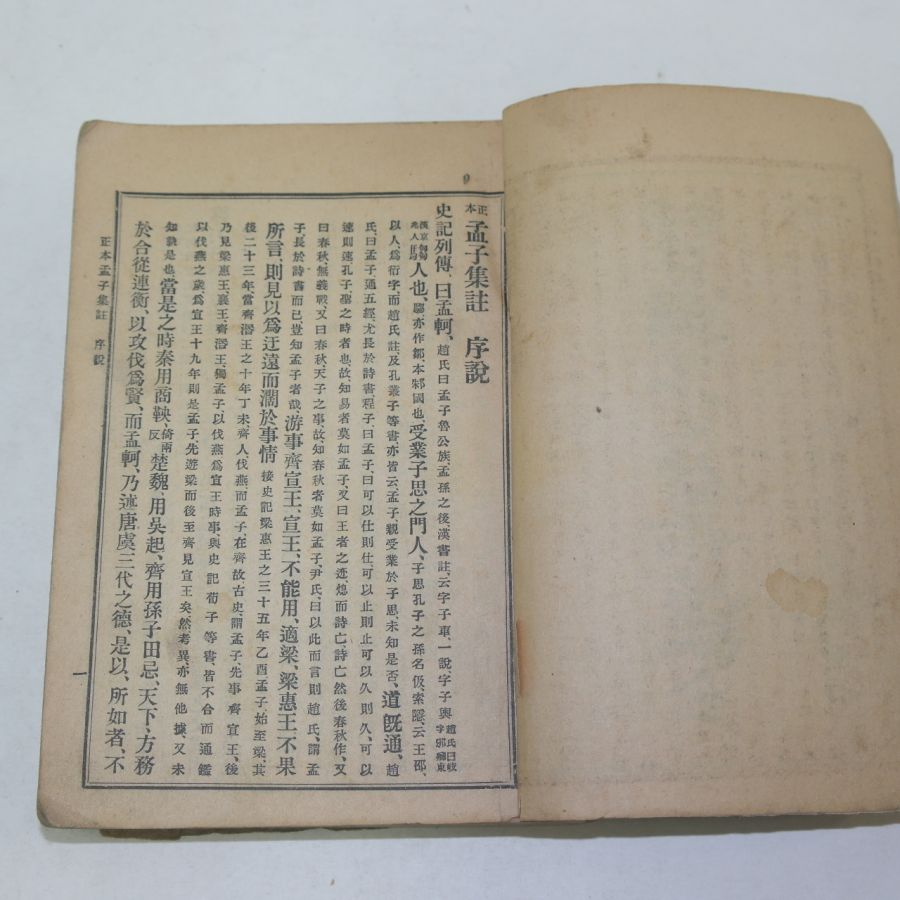 正本 孟子集註 序說
史記列傳、曰孟軻、趙氏曰孟子魯公族、孟孫之後、漢書註、云字子車、一說、字子輿
人也、騶、亦作鄒、本邾國也、受業子思之門人、子思孔子之孫名伋、索隱、云王邵、
以人、爲衍字、而趙氏註及孔叢子等書、亦皆云、孟子、親受業於子思、未知是否、道旣通、趙
氏、曰孟子、通五經、尤長於詩書、程子、曰孟子、曰可以仕則仕、可以止則止、可以久則久、可以
速則速、孔子、聖之時者也、故知易者、莫如孟子、又曰王者之迹熄而詩亡、詩亡然後春秋作、又
曰春秋、無義戰、又曰春秋、天子之事、故知春秋者、莫如孟子、尹氏、曰以此而言則趙氏、謂孟
子、長於詩書而已、豈知孟子者哉、游事齊宣王、宣王、不能用、適梁、梁惠王、不果
所言、則見以爲迂遠而濶於事情 按史記梁惠王之三十五年乙酉孟子、始至梁、其
後二十三年、當齊湣王之十年丁未、齊人伐燕而孟子、在齊故古史、謂孟子、先事齊宣王、後
乃見梁惠王、襄王、齊湣王、獨孟子、以伐燕、爲宣王時事、與史記荀子等書、皆不合而通鑑
以伐燕之歲、爲宣王十九年、則是孟子、先遊梁而後至齊、見宣王矣、然考異、亦無他據、又未
知孰是也、當是之時、秦用商鞅、倚兩反 楚魏、用吳起、齊用孫子田忌、天下、方務
於合從連衡、以攻伐爲賢、而孟軻、乃述唐虞三代之德、是以、所如者、不
正本孟子集註 序說
一